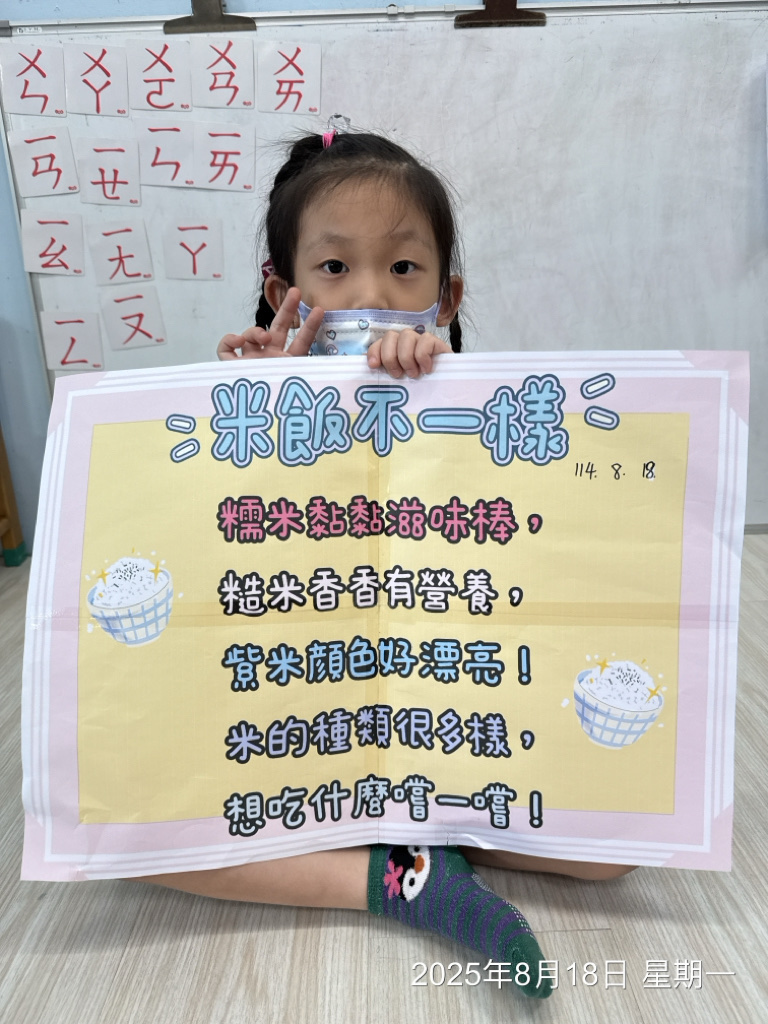 ㄨㄣ ㄨㄚ ㄨㄛ ㄨㄢ ㄨㄞ
ㄧㄢ ㄧㄝ ㄧㄣ ㄧㄞ
ㄧㄠ ㄧㄤ ㄧㄚ
ㄧㄥ ㄧㄡ
米飯不一樣
114. 8. 18.
糯米黏黏滋味棒，
糙米香香有營養，
紫米顏色好漂亮！
米的種類很多樣，
想吃什麼嚐一嚐！
2025年8月18日 星期一